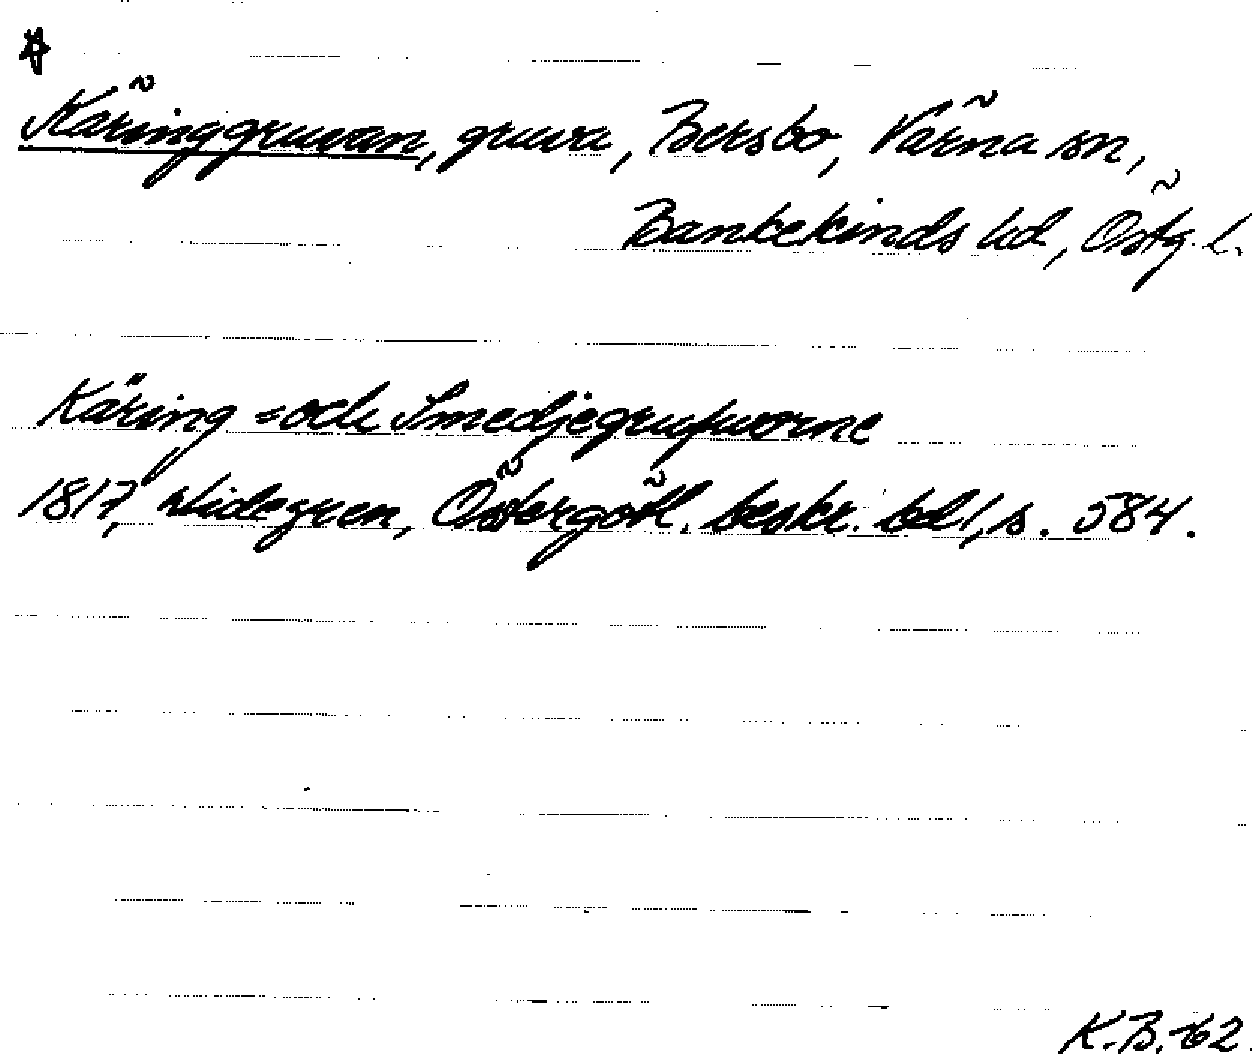 Käringgruvan, gruva, Bersbo, Värna sn,
Bankekinds hd, Östg. l.
Käring- och Smedjegrufworne
1817, Widegren, Östergötl. beskr. bd 1, s. 584.
K.B. -62.